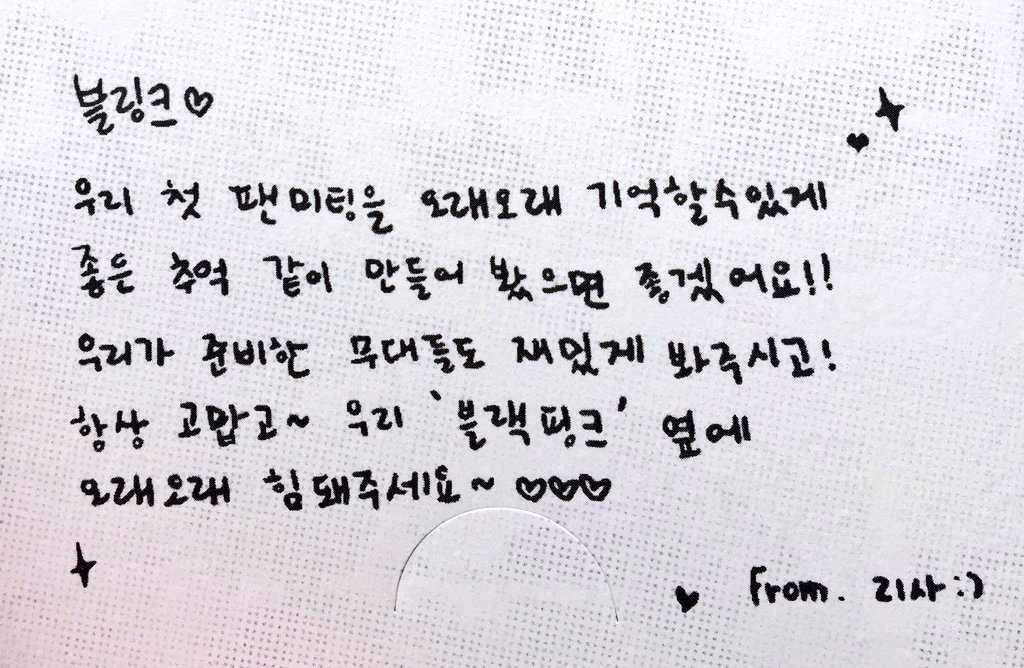 블링크♡
우리 첫 팬미팅을 오래오래 기억할수있게
좋은 추억 같이 만들어 봤으면 좋겠어요!!
우리가 준비한 무대들도 재밌게 봐주시고!
항상 고맙고~ 우리 '블랙핑크' 옆에
오래오래 힘돼주세요~ ♡♡♡
From. 리사:)